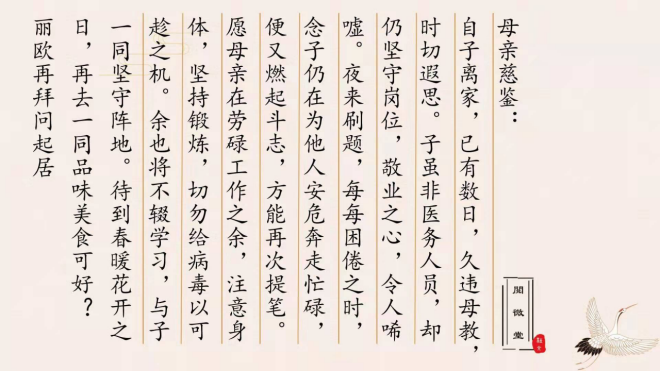 母亲慈鉴：
自子离家，已有数日，久违母教，
时切遐思。子虽非医务人员，却
仍坚守岗位，敬业之心，令人唏
嘘。夜来刷题，每每困倦之时，
念子仍在为他人安危奔走忙碌，
便又燃起斗志，方能再次提笔。
愿母亲在劳碌工作之余，注意身
体，坚持锻炼，切勿给病毒以可
趁之机。余也将不辍学习，与子
一同坚守阵地。待到春暖花开之
日，再去一同品味美食可好？
丽欧再拜问起居
閱微堂